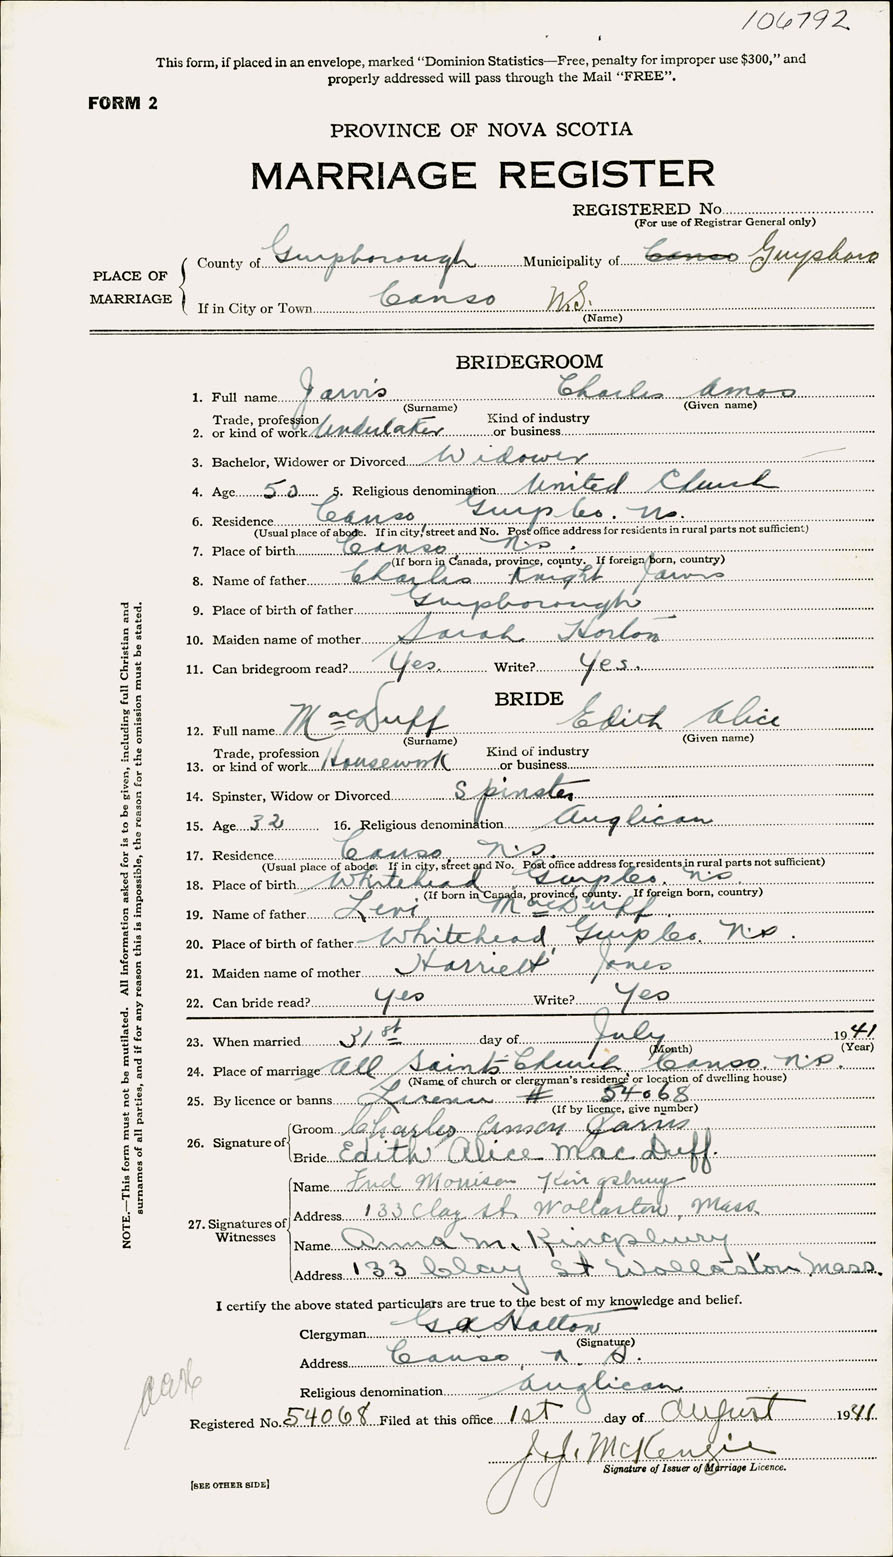 106792
This form, if placed in an envelope, marked “Dominion Statistics—Free, penalty for improper use $300,” and
properly addressed will pass through the Mail “FREE”.
FORM 2
PROVINCE OF NOVA SCOTIA
MARRIAGE REGISTER
REGISTERED No.
(For use of Registrar General only)
PLACE OF MARRIAGE
County of Guysborough Municipality of Canso Guysboro
If in City or Town Canso N.S.
(Name)
BRIDEGROOM
1. Full name Jarvis Charles Amos
(Surname) (Given name)
Trade, profession Kind of industry
2. or kind of work Undertaker or business
3. Bachelor, Widower or Divorced Widower
4. Age 50 5. Religious denomination United Church
6. Residence Canso, Guys Co. N.S.
(Usual place of abode. If in city, street and No. Post office address for residents in rural parts not sufficient)
7. Place of birth Canso, N.S.
(If born in Canada, province, county. If foreign born, country)
8. Name of father Charles Knight Jarvis
9. Place of birth of father Guysborough
10. Maiden name of mother Sarah Horton
11. Can bridegroom read? Yes. Write? Yes.
BRIDE
12. Full name MacDuff Edith Alice
(Surname) (Given name)
Trade, profession Kind of industry
13. or kind of work Housework or business
14. Spinster, Widow or Divorced Spinster
15. Age 32 16. Religious denomination Anglican
17. Residence Canso, N.S.
(Usual place of abode. If in city, street and No. Post office address for residents in rural parts not sufficient)
18. Place of birth Whitehead, Guys Co. N.S.
(If born in Canada, province, county. If foreign born, country)
19. Name of father Levi MacDuff
20. Place of birth of father Whitehead, Guys Co. N.S.
21. Maiden name of mother Harriett Jones
22. Can bride read? Yes Write? Yes
23. When married 31st day of July 1941
(Month) (Year)
24. Place of marriage All Saints Church, Canso, N.S.
(Name of church or clergyman's residence or location of dwelling house)
25. By licence or banns License # 54068
(If by licence, give number)
26. Signature of
Groom Charles Jarvis
Bride Edith Alice MacDuff.
27. Signatures of Witnesses
Name Fred Kingsbury
Address 133 Clay St. Wollaston, Mass.
Name Anna M. Kingsbury
Address 133 Clay St Wollaston Mass.
I certify the above stated particulars are true to the best of my knowledge and belief.
Clergyman
(Signature)
Address Canso, N. S.
Religious denomination Anglican
Registered No. 54068 Filed at this office 1st day of August 1941
J. J. McKenzie
Signature of Issuer of Marriage Licence.
[SEE OTHER SIDE]
NOTE.—This form must not be mutilated. All information asked for is to be given, including full Christian and
surnames of all parties, and if for any reason this is impossible, the reason for the omission must be stated.